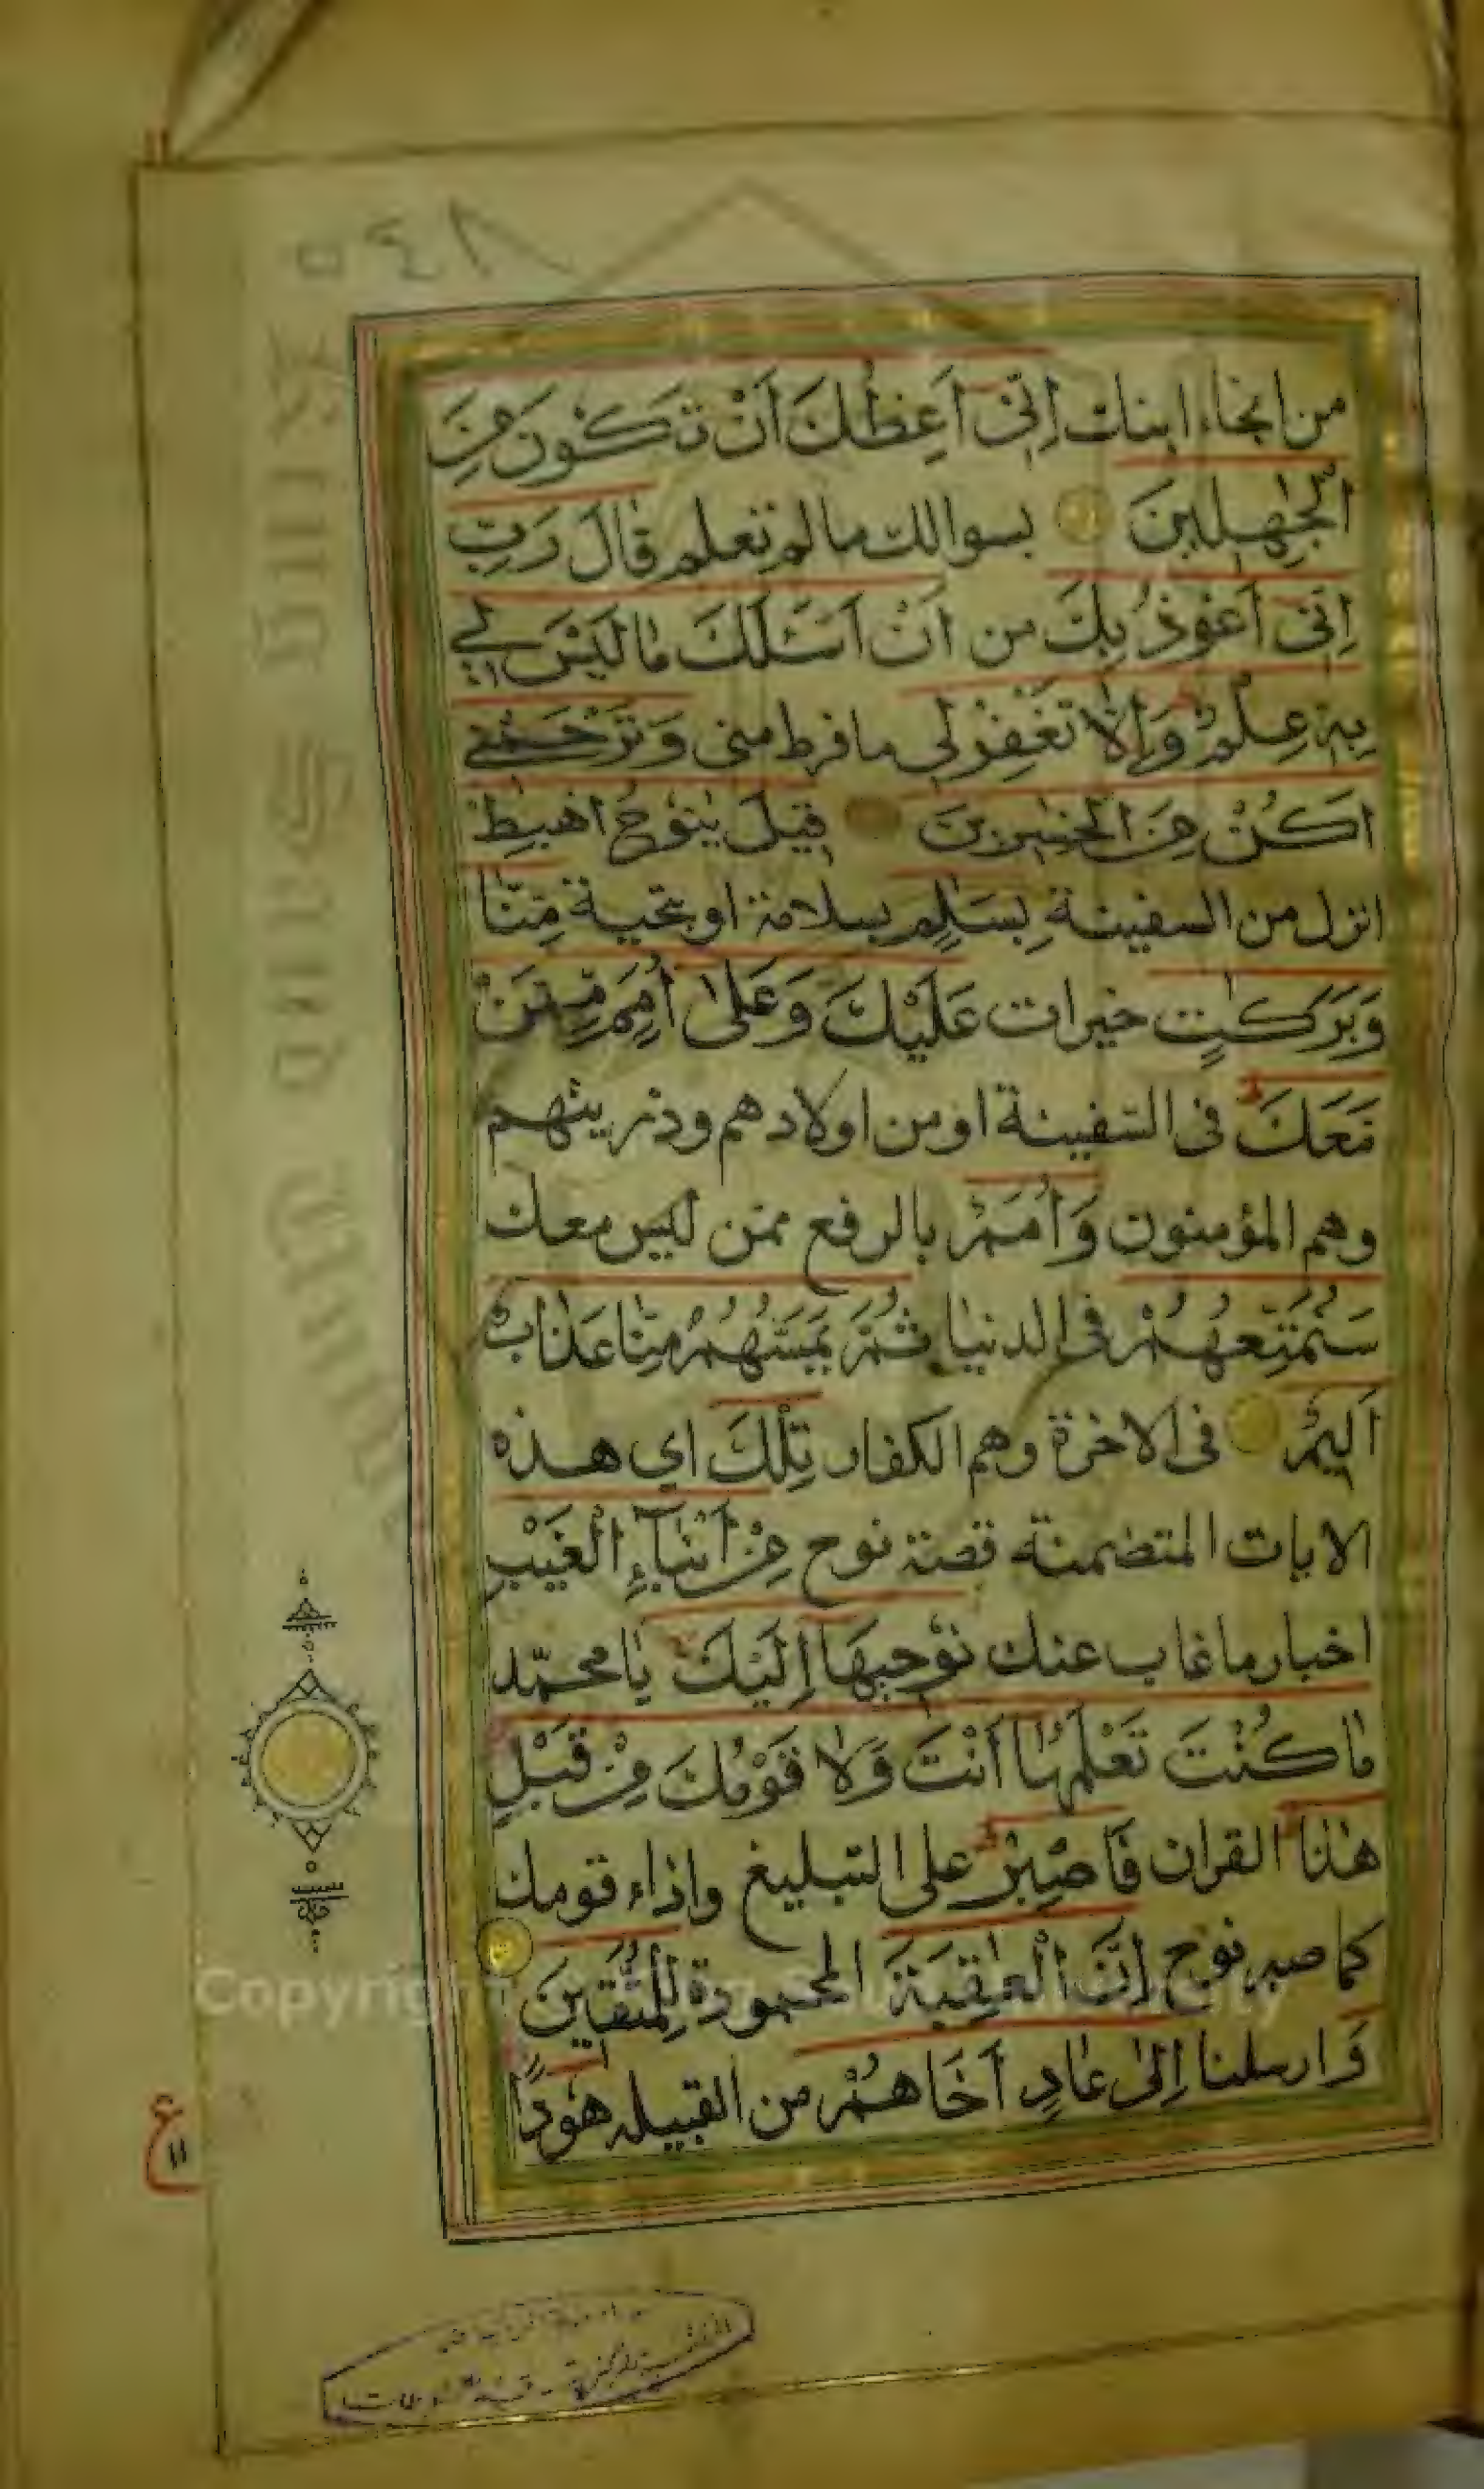 ٥٤٨
من انجاء ابنك اِنّى اَعِظُكَ اَنْ تَكُونَ مِنَ
الْجٰهِلينَ بسوالك ما لم تعلم قٰالَ رَبِّ
اِنّى اَعُوذُ بِكَ من اَنْ اَسْئَلَكَ مٰا لَيْسَ لى
بِهٖ عِلْمٌ وَاِلّٰا تَغْفِرْلى ما فرط منى وَتَرْحَمْنى
اَكُنْ مِنَ الْخٰسِرينَ قيلَ يٰنُوحُ اهْبِطْ
انزل من السفينة بِسَلٰمٍ بسلامة او بتحية مِنّٰا
وَبَرَكٰتٍ خيرات عَلَيْكَ وَعَلىٰ اُمَمٍ مِمَّنْ
مَعَكَ فى السفينة او من اولادهم وذريتهم
وهم المؤمنون وَاُمَمٌ بالرفع ممن ليس معك
سَنُمَتِّعُهُمْ فى الدنيا ثُمَّ يَمَسُّهُمْ مِنّٰا عَذٰابٌ
اَليمٌ فى الاخرة وهم الكفار تِلْكَ اى هذه
الايات المتضمنة قصة نوح مِنْ اَنْبٰاءِ الْغَيْبِ
اخبار ما غاب عنك نُوحيهَا اِلَيْكَ يا محمّد
مٰا كُنْتَ تَعْلَمُهٰا اَنْتَ وَلٰا قَوْمُكَ مِنْ قَبْلِ
هٰذَا القران فَاصْبِرْ على التبليغ واذاء قومك
كما صبر نوح اِنَّ الْعٰقِبَةَ المحمودة لِلْمُتَّقينَ
وَارسلنا اِلىٰ عٰادٍ اَخَاهُمْ من القبيله هُودًا
ع
١١
Copyright